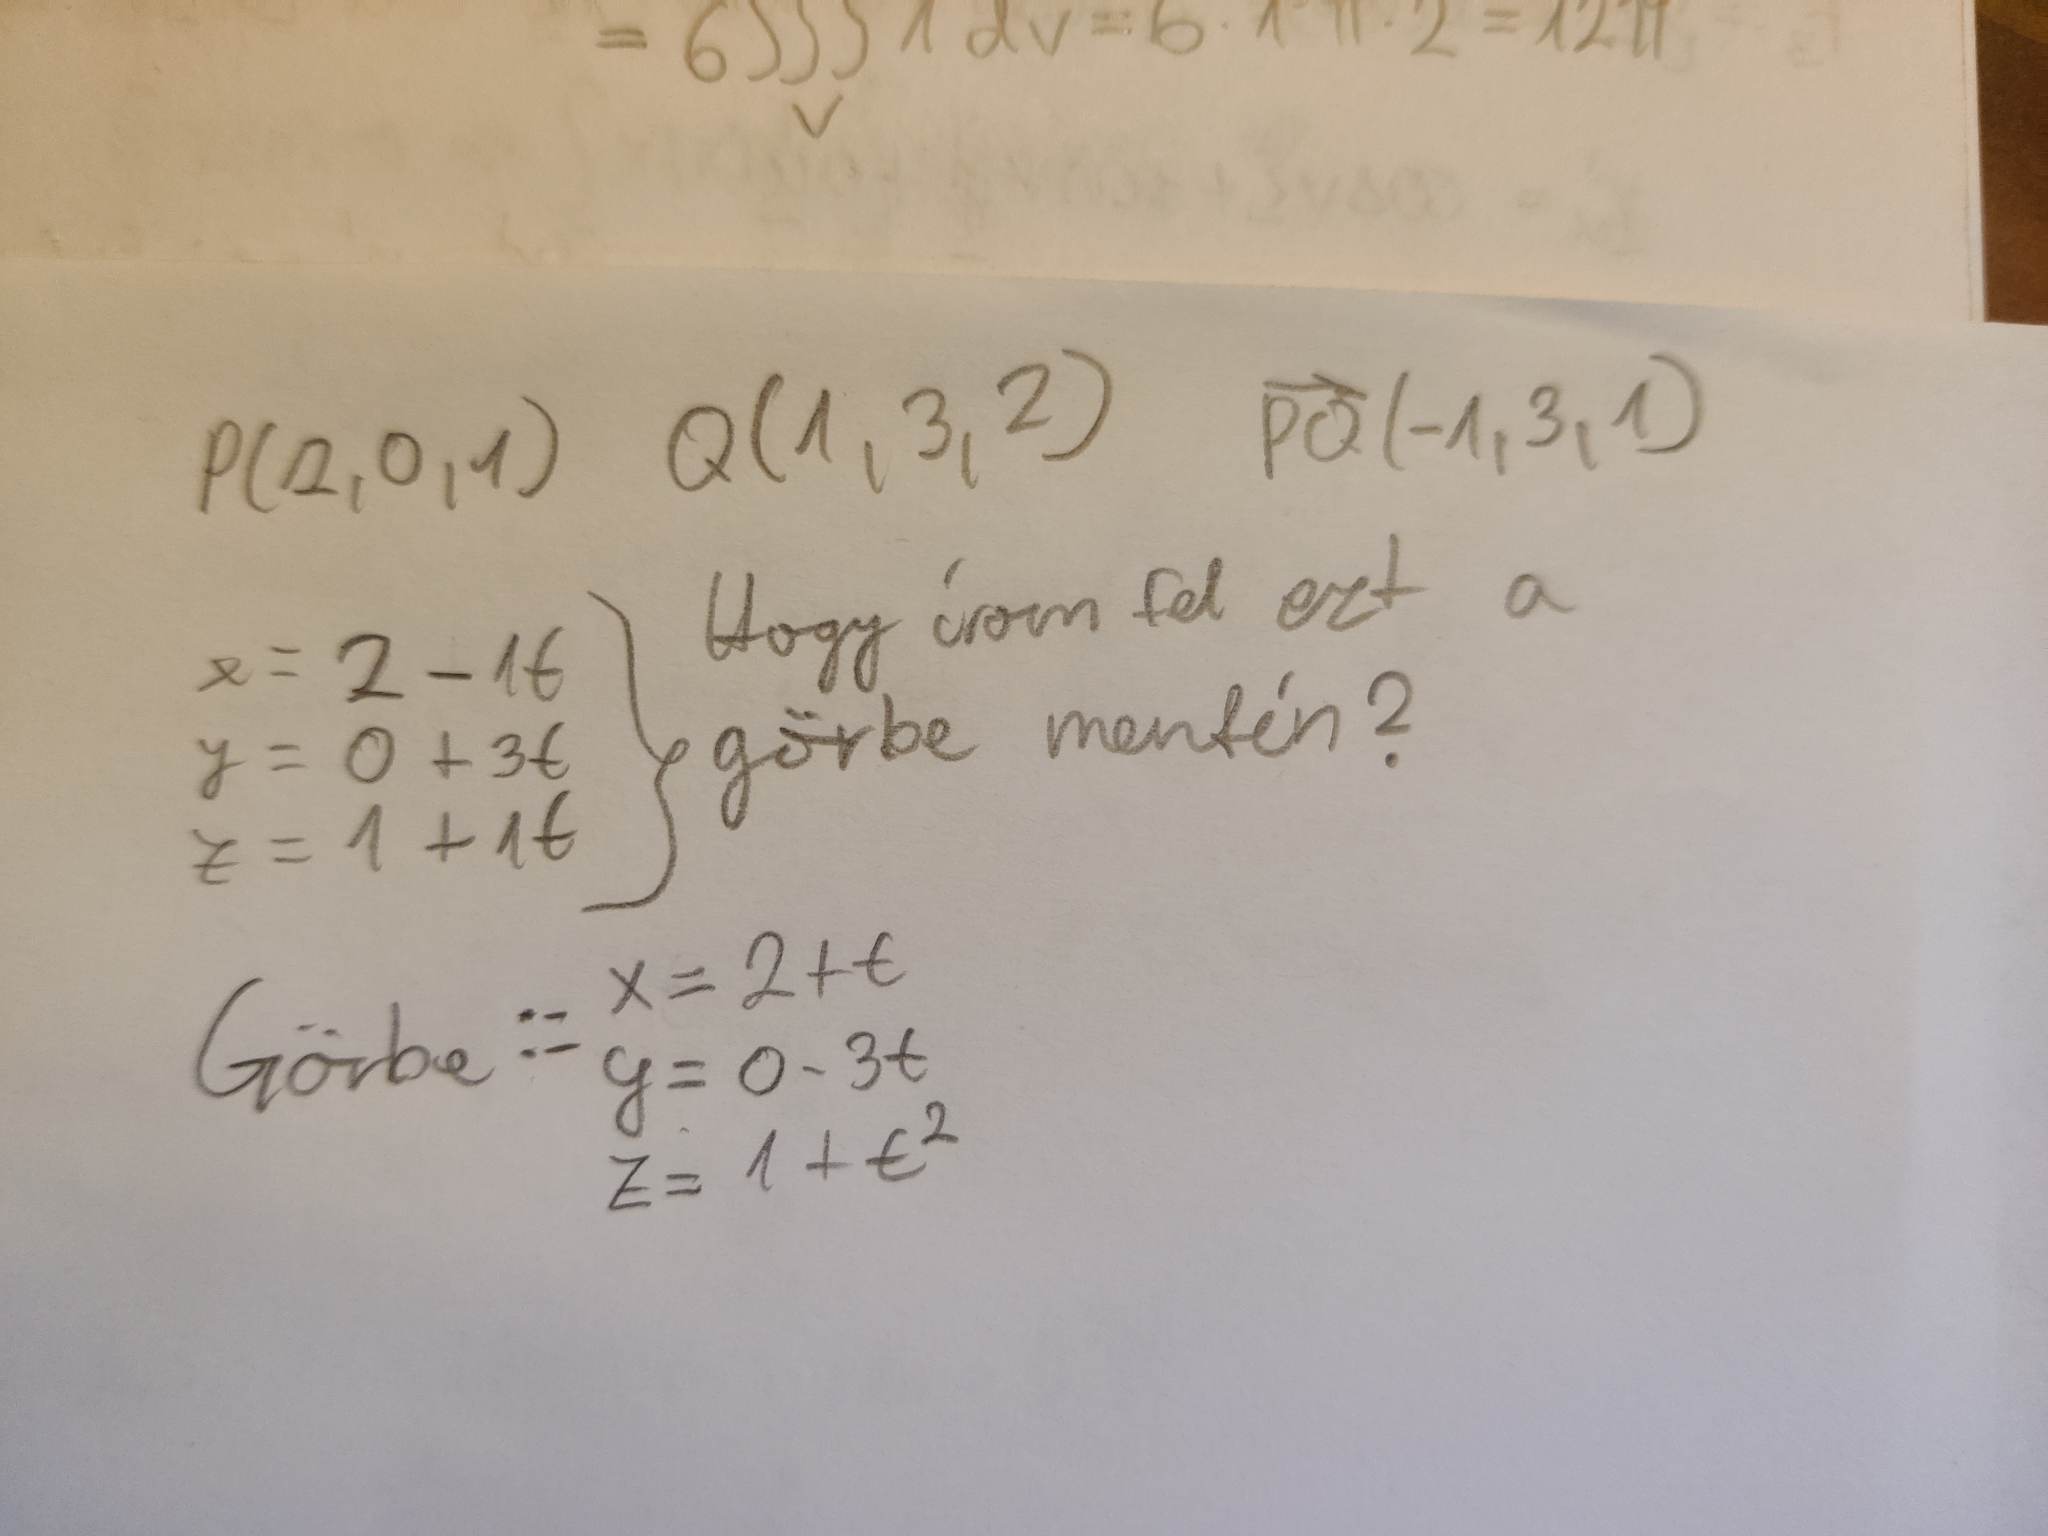 = 6∫∫∫ 1 dv = 6 · 1² π · 2 = 12π
V
P(2,0,1) Q(1,3,2) PQ(-1,3,1)
x = 2 - 1t
y = 0 + 3t
z = 1 + 1t
Hogy írom fel ezt a
görbe mentén?
Görbe :=
x = 2+t
y = 0-3t
z = 1+t²